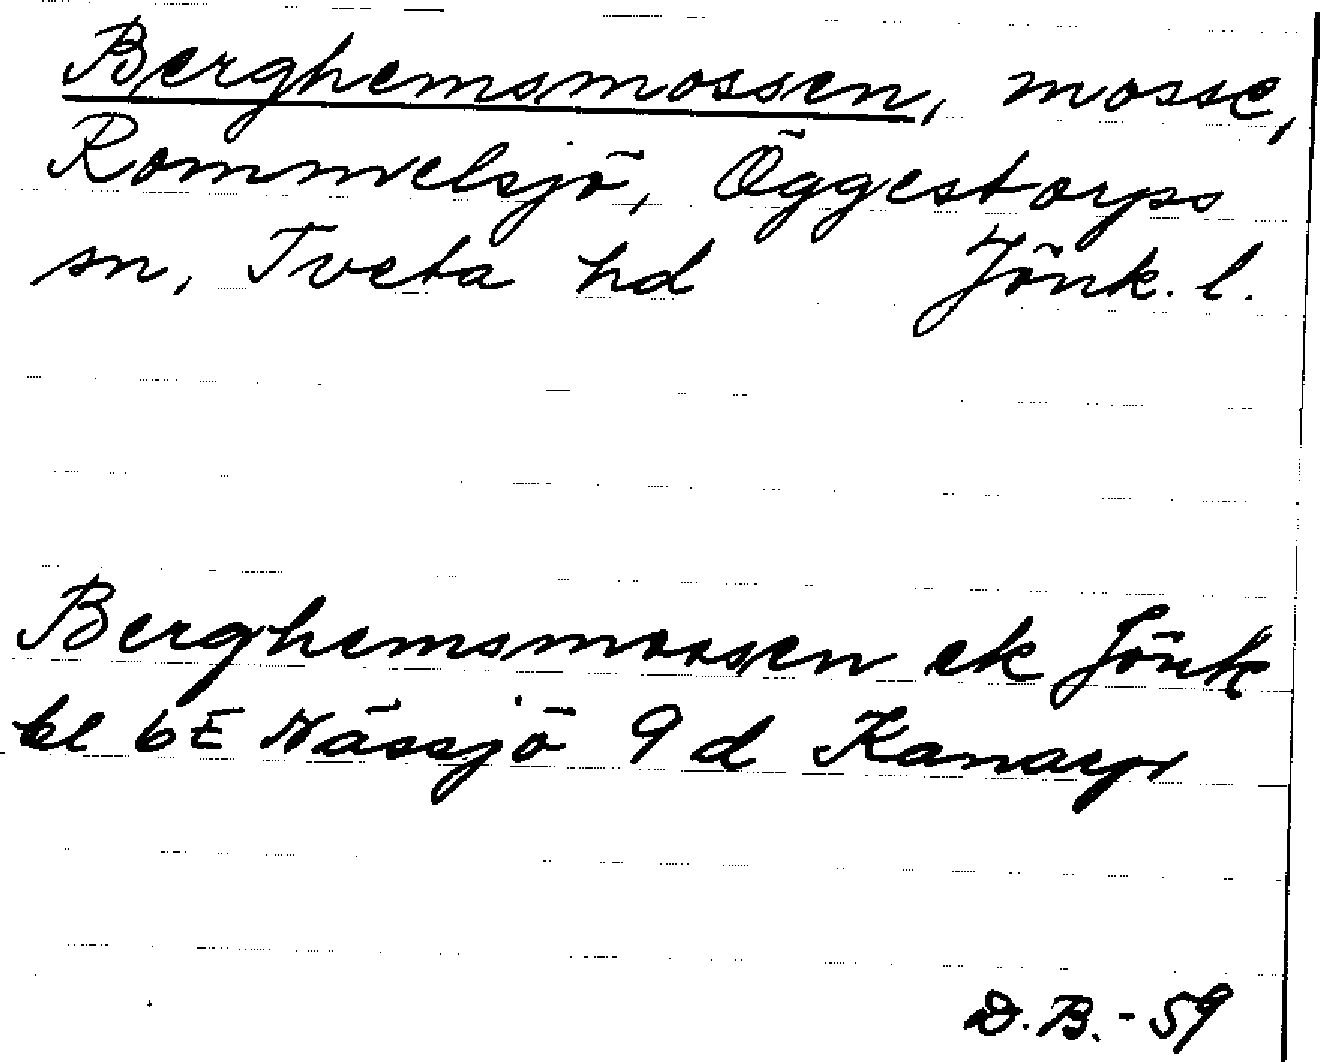 Berghemsmossen, mosse,
Rommelsjö, Öggestorps
sn, Tveta hd Jönk. l.
Berghemsmossen ek Jönk
bl 6E Nässjö 9 d Kanarp
D.B.-59